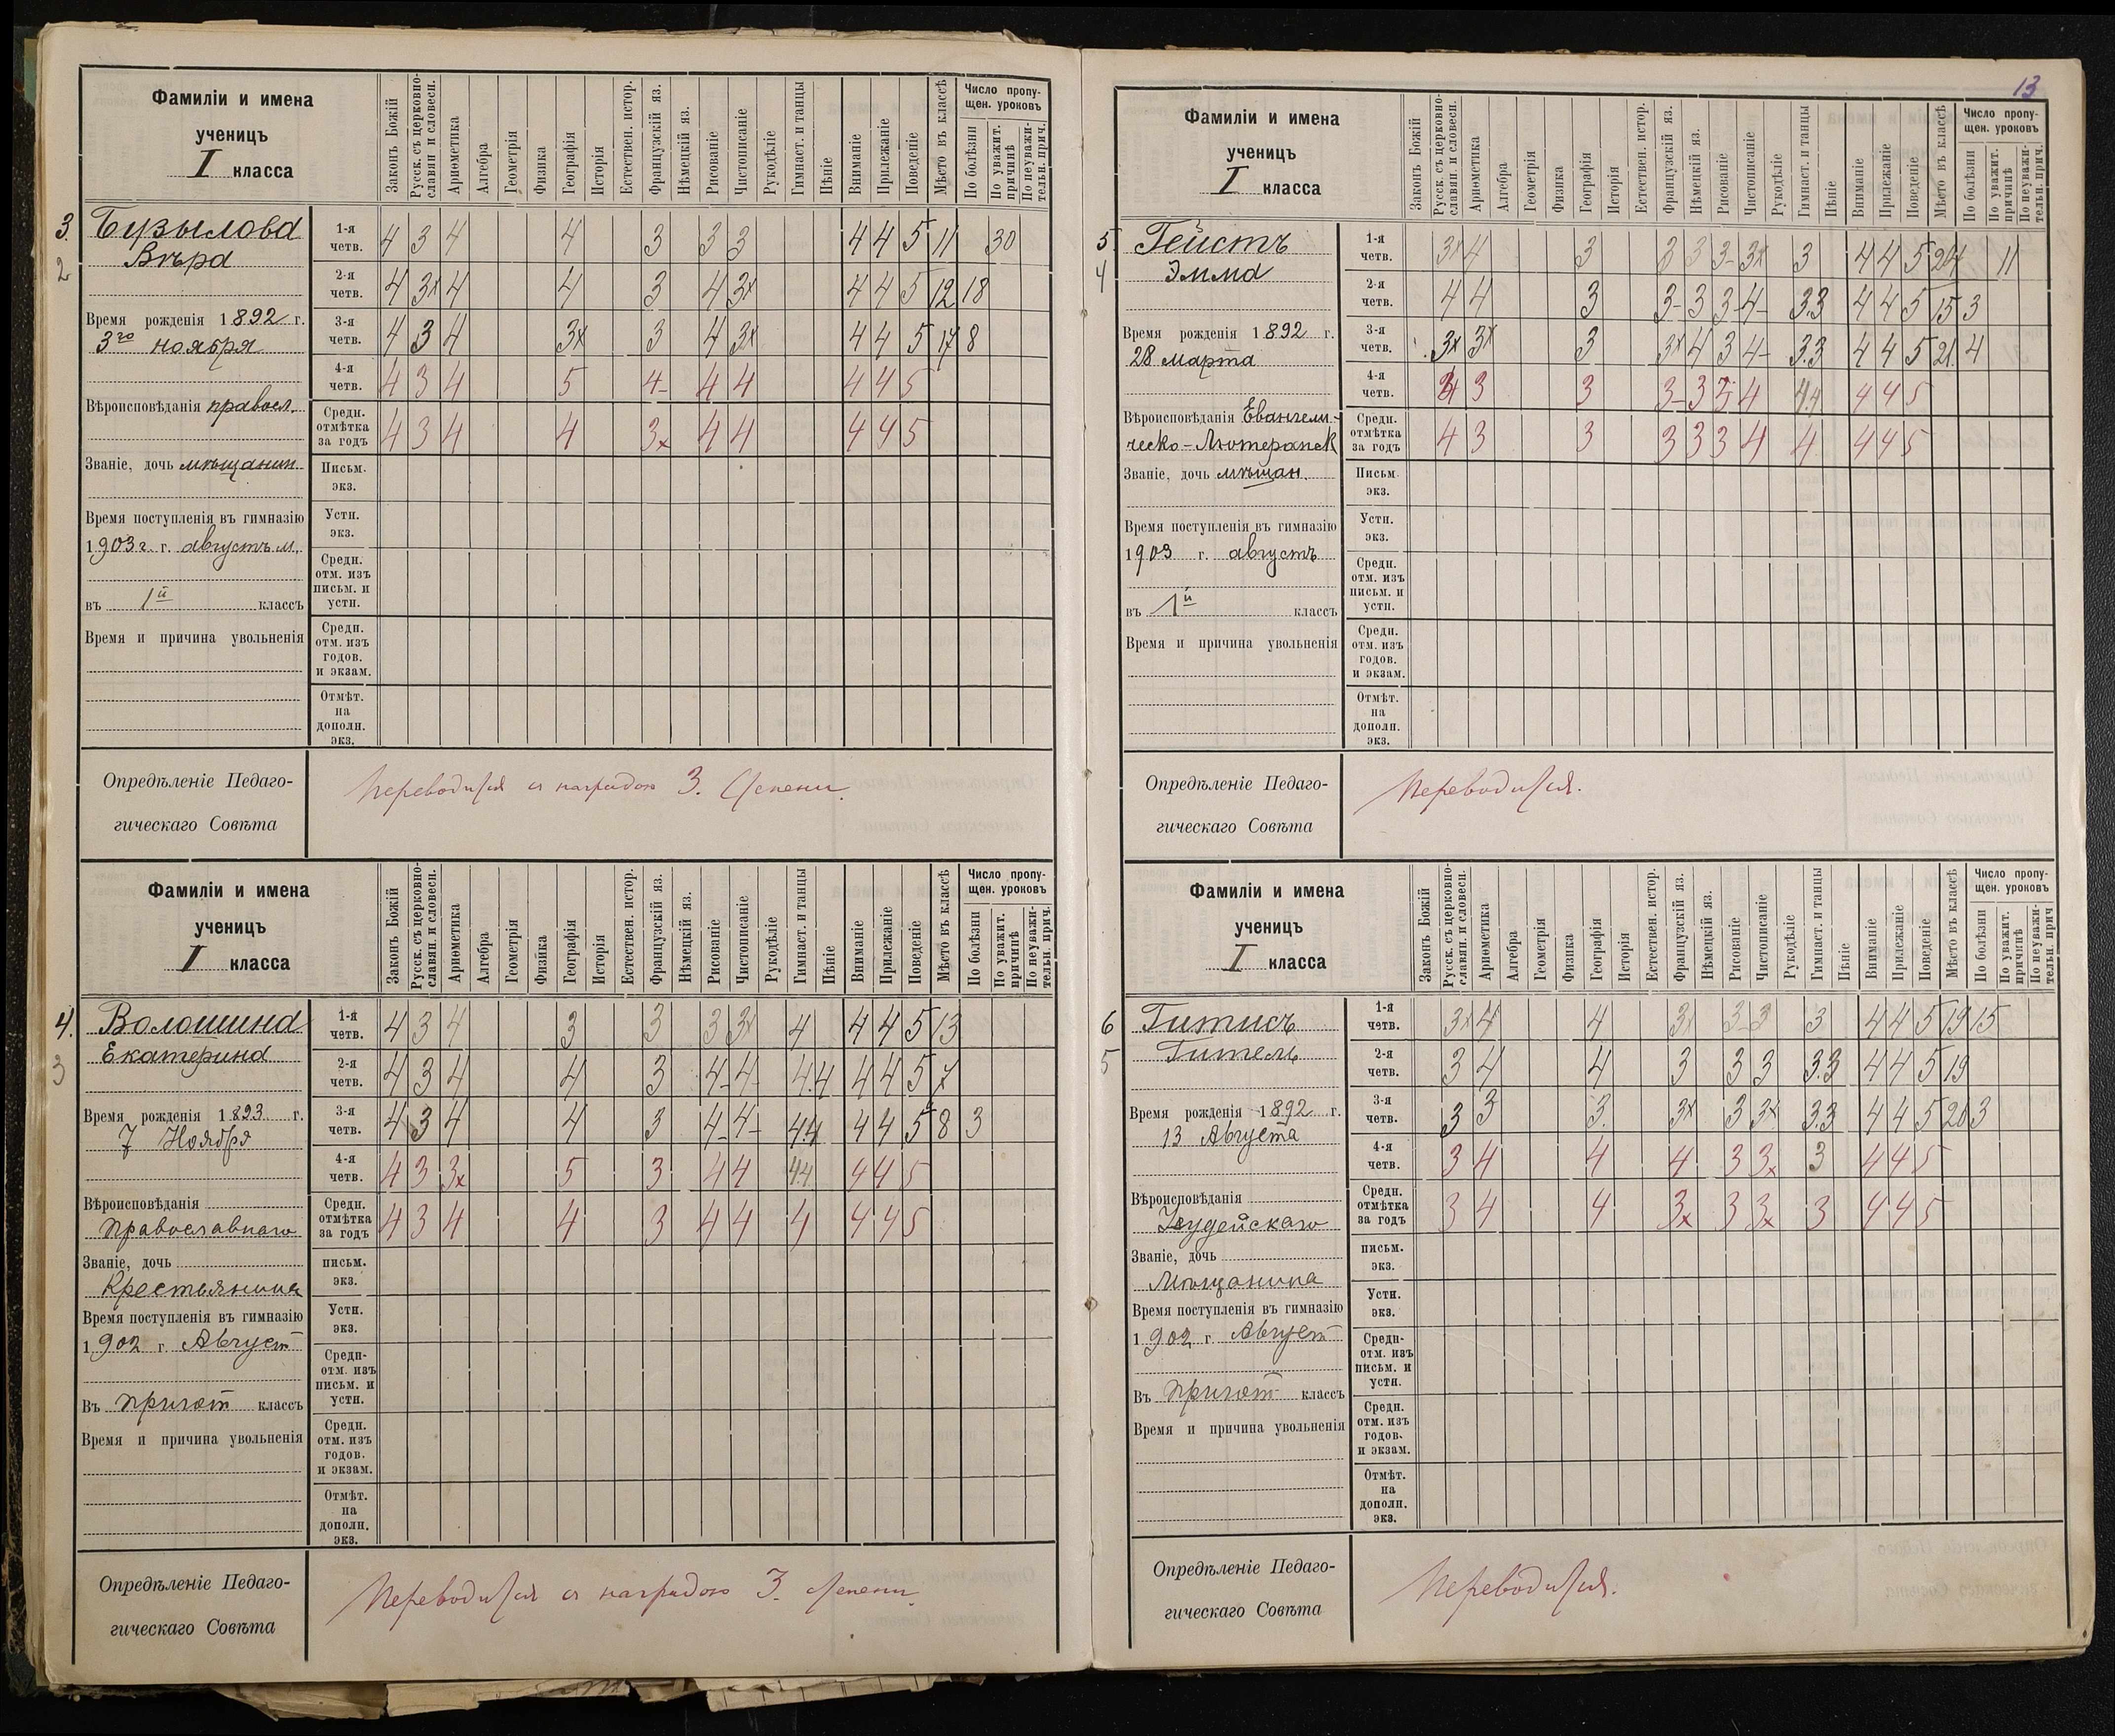 13
Фамиліи и имена
ученицъ
I класса
Законъ Божій
Русск. съ церковно-
славян. и словесн.
Ариѳметика
Алгебра
Геометрія
Физика
Географія
Исторія
Естествен. истор.
Французскій яз.
Нѣмецкій яз.
Рисованіе
Чистописаніе
Рукодѣліе
Гимнаст. и танцы
Пѣніе
Вниманіе
Прилежаніе
Поведеніе
Мѣсто въ классѣ
Число пропу-
щен. уроковъ
По болѣзни
По уважит.
причинѣ
По неуважи-
тельн. прич.
3.
2
Бузылова
Вѣра
Время рожденія 1892 г.
3го ноября
Вѣроисповѣданія правосл.
Званіе, дочь мѣщанин.
Время поступленія въ гимназію
1903 г. г. августъ м.
въ 1й классъ
Время и причина увольненія
1-я четв. 4 3 4 4 3 3 3 4 4 5 11 30
2-я четв. 4 3x 4 4 3 4 3x 4 4 5 12 18
3-я четв. 4 3 4 3x 3 4 3x 4 4 5 17 8
4-я четв. 4 3 4 5 4- 4 4 4 4 5
Средн. отмѣтка за годъ 4 3 4 4 3x 4 4 4 4 5
Письм. экз.
Устн. экз.
Средн. отм. изъ письм. и устн.
Средн. отм. изъ годов. и экзам.
Отмѣт. на дополн. экз.
Опредѣленіе Педаго-
гическаго Совѣта
Переводится съ наградою 3. степени.
Фамиліи и имена
ученицъ
I класса
Законъ Божій
Русск. съ церковно-
славян. и словесн.
Ариѳметика
Алгебра
Геометрія
Физика
Географія
Исторія
Естествен. истор.
Французскій яз.
Нѣмецкій яз.
Рисованіе
Чистописаніе
Рукодѣліе
Гимнаст. и танцы
Пѣніе
Вниманіе
Прилежаніе
Поведеніе
Мѣсто въ классѣ
Число пропу-
щен. уроковъ
По болѣзни
По уважит.
причинѣ
По неуважи-
тельн. прич.
4.
3
Волошина
Екатерина
Время рожденія 1893 г.
7 Ноября
Вѣроисповѣданія
Православнаго
Званіе, дочь
Крестьянина
Время поступленія въ гимназію
1902 г. Август
Въ пригот классъ
Время и причина увольненія
1-я четв. 4 3 4 3 3 3 3x 4 4 4 5 13
2-я четв. 4 3 4 4 3 4- 4- 4.4 4 4 5 7
3-я четв. 4 3 4 4 3 4- 4- 4.4 4 4 5 8 3
4-я четв. 4 3 3x 5 3 4 4 4.4 4 4 5
Средн. отмѣтка за годъ 4 3 4 4 3 4 4 4 4 4 5
письм. экз.
Устн. экз.
Средн- отм. изъ письм. и устн.
Средн. отм. изъ годов. и экзам.
Отмѣт. на дополн. экз.
Опредѣленіе Педаго-
гическаго Совѣта
Переводится съ наградою 3. степени.
Фамиліи и имена
ученицъ
I класса
Законъ Божій
Русск. съ церковно-
славян. и словесн.
Ариѳметика
Алгебра
Геометрія
Физика
Географія
Исторія
Естествен. истор.
Французскій яз.
Нѣмецкій яз.
Рисованіе
Чистописаніе
Рукодѣліе
Гимнаст. и танцы
Пѣніе
Вниманіе
Прилежаніе
Поведеніе
Мѣсто въ классѣ
Число пропу-
щен. уроковъ
По болѣзни
По уважит.
причинѣ
По неуважи-
тельн. прич.
5.
4
Гейстъ
Эмма
Время рожденія 1892 г.
28 марта
Вѣроисповѣданія Евангели-
ческо-Лютеранск
Званіе, дочь мѣщан.
Время поступленія въ гимназію
1903 г. августъ
въ 1й классъ
Время и причина увольненія
1-я четв. 3x 4 3 3 3 3- 3x 3 4 4 5 11
2-я четв. 4 4 3 3- 3 3 4- 3.3 4 4 5 15 3
3-я четв. 3x 3x 3 3x 4 3 4- 3.3 4 4 5 21. 4
4-я четв. 3 3 3- 3 4 4.4 4 4 5
Средн. отмѣтка за годъ 4 3 3 3 3 3 4 4 4 4 5
Письм. экз.
Устн. экз.
Средн. отм. изъ письм. и устн.
Средн. отм. изъ годов. и экзам.
Отмѣт. на дополн. экз.
Опредѣленіе Педаго-
гическаго Совѣта
Переводится.
Фамиліи и имена
ученицъ
I класса
Законъ Божій
Русск. съ церковно-
славян. и словесн.
Ариѳметика
Алгебра
Геометрія
Физика
Географія
Исторія
Естествен. истор.
Французскій яз.
Нѣмецкій яз.
Рисованіе
Чистописаніе
Рукодѣліе
Гимнаст. и танцы
Пѣніе
Вниманіе
Прилежаніе
Поведеніе
Мѣсто въ классѣ
Число пропу-
щен. уроковъ
По болѣзни
По уважит.
причинѣ
По неуважи-
тельн. прич
6
5
Гитисъ
Гитель
Время рожденія 1892 г.
13 Августа
Вѣроисповѣданія
Іудейскаго
Званіе, дочь
Мѣщанина
Время поступленія въ гимназію
1902 г. Август
Въ пригот классъ
Время и причина увольненія
1-я четв. 3x 4 4 3x 3- 3 3 4 4 5 19 15
2-я четв. 3 4 4 3 3 3 3.3 4 4 5 19
3-я четв. 3 3 3. 3x 3 3x 3.3 4 4 5 20 3
4-я четв. 3 4 4 4 3 3x 3 4 4 5
Средн. отмѣтка за годъ 3 4 4 3x 3 3x 3 4 4 5
письм. экз.
Устн. экз.
Средн- отм. изъ письм. и устн.
Средн. отм. изъ годов. и экзам.
Отмѣт. на дополн. экз.
Опредѣленіе Педаго-
гическаго Совѣта
Переводится.